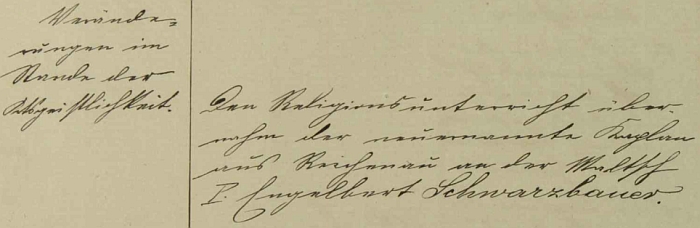 Verände-
rungen im
Stande der
Ortsgeistlichkeit.
Den Religionsunterricht über-
nahm der neuernannte Kaplan
aus Reichenau an der Maltsch
P. Engelbert Schwarzbauer.